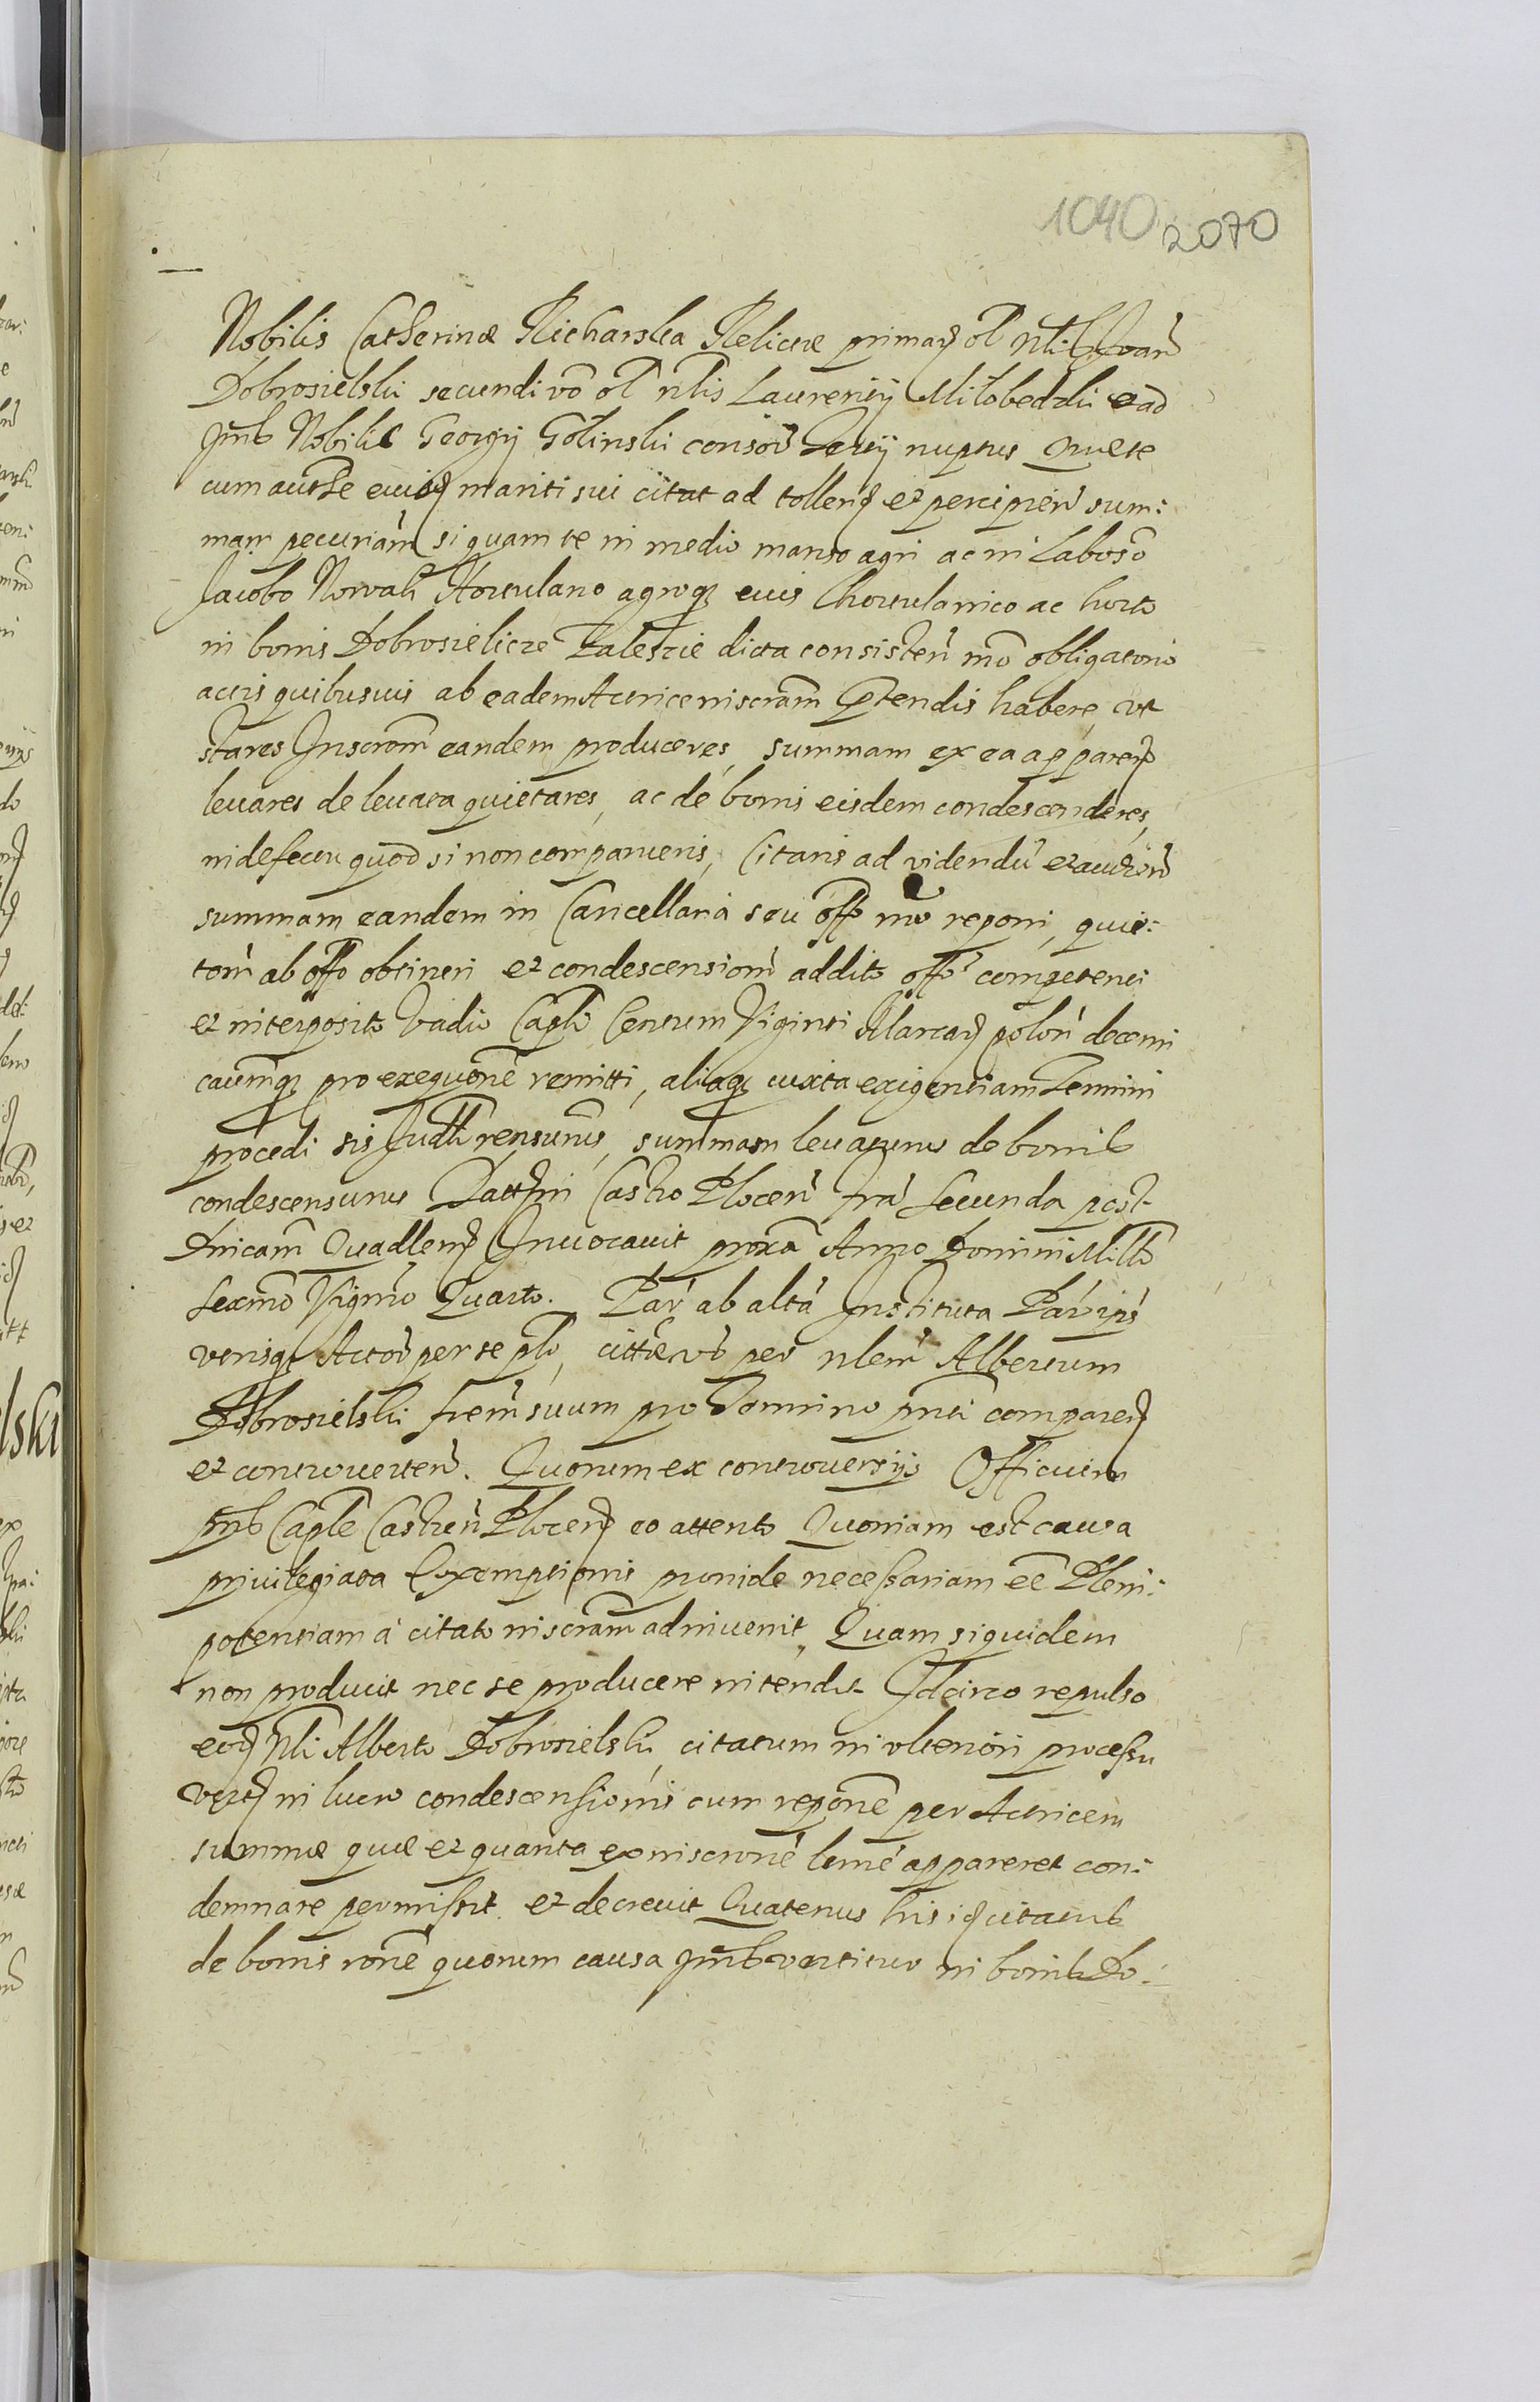 1040 2070
Nobilis Catherinæ Richarska Relictæ primarͥ ol Nlis Joan̄
Dobrosielski secundi vō ol nlis Laurentij Miłobedzki ead
pn̄tib Nobilis Georgij Golinski consor̄ Tertij nuptus Quæ te
cum autħe eiusd mariti sui citat ad tollend et percipien̄ sum:
mam pecuniam̄ si quam te in medio manso agri ac in Laboso
Jacobo Novak Hortulano agroq eius hortulanico ac horto
in bonis Dobrosielicze Zalesie dicta consisten̄ mō obligatorio
actis quibusuis ab eadem Actrice inscram̄ prætendis habere, vt
stares Inscrōm eandem produceres, summam ex ea apparen̄
leuares de leuata quietares, ac de bonis eisdem condescenderes,
in defectu quod si non comparueris, Citaris ad videndū et audien̄
summam eandem in Cancellaria seu offo nrō reponi, quie:
tōm ab offo obtineri et condescensiom̄ addito offo competenti
et interposito Vadio Capli Centum Viginti Marcarͥ polon̄ decemi
causmq pro exequōne remitti, aliaq iuxta exigentiam Termini
procedi sis Judtr̄ rensurus, summam leuaturus de bonis
condescensurus Datt in Castro Plocen̄ fra Secunda post
Dnicam̄ Quadlem̄ Inuocauit proxa Anno Domini Millō
Sexmō Vigmō Quarto. Par̄ ab altā Instituta Par̄ ips
verisq Actor̄ per se plr̄, cittæ vō per nlem̄ Albertum
Dobrosielski frem̄ suum pro Termino pn̄ti comparen̄
et controuerten̄. Quorum ex controuersijs Officium
pn̄s Caple Castren̄ Plocen̄ eo attento Quoniam est causa
priuilegiata Exemptionis proinde necessariam eē Pleni:
potentiam a citato inscram̄ adinuenit, Quam siquidem
non producit nec se producere intendit Idcirco repulso
eod Nli Alberto Dobrosielski, citatum in vlteriori processu
vti in lucro condescensionis cum repōne per Actricem
summæ quæ et quanta ex inscriōne leme appareret con:
demnare permissit et decreuit Quatenus his id citatus
de bonis rōne quorum causa pn̄tib vertitur in bonis Do: